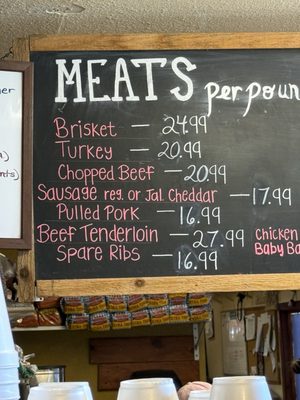 MEATS per poun
Brisket — 24.99
Turkey — 20.99
Chopped Beef — 20.99
Sausage reg. or Jal. Cheddar — 17.99
Pulled Pork — 16.99
Beef Tenderloin — 27.99
Chicken
Baby Ba
Spare Ribs — 16.99